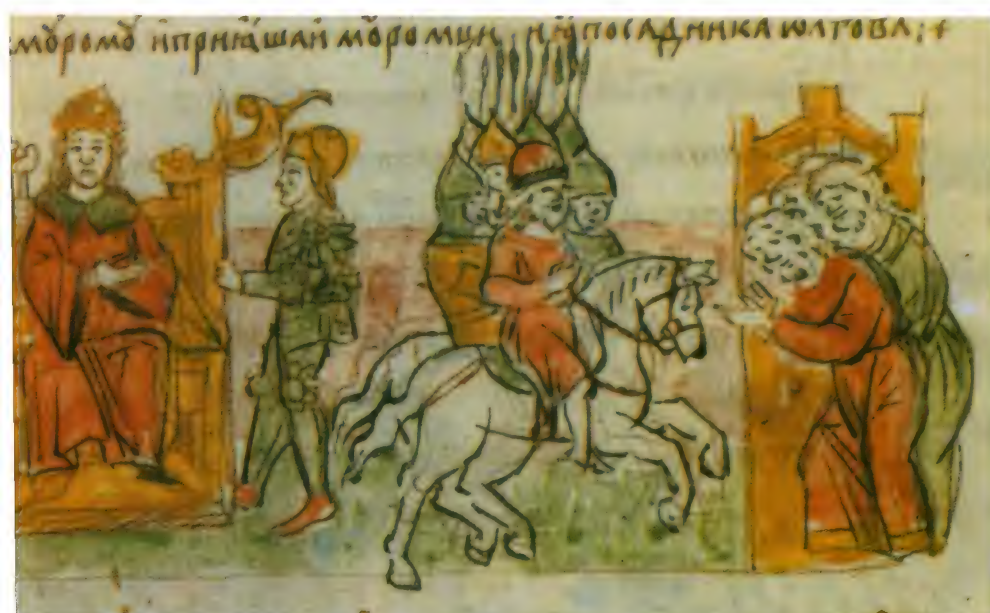 моромоу иприꙗшаи моромци, и ꙗ посадника ѡлгова;+